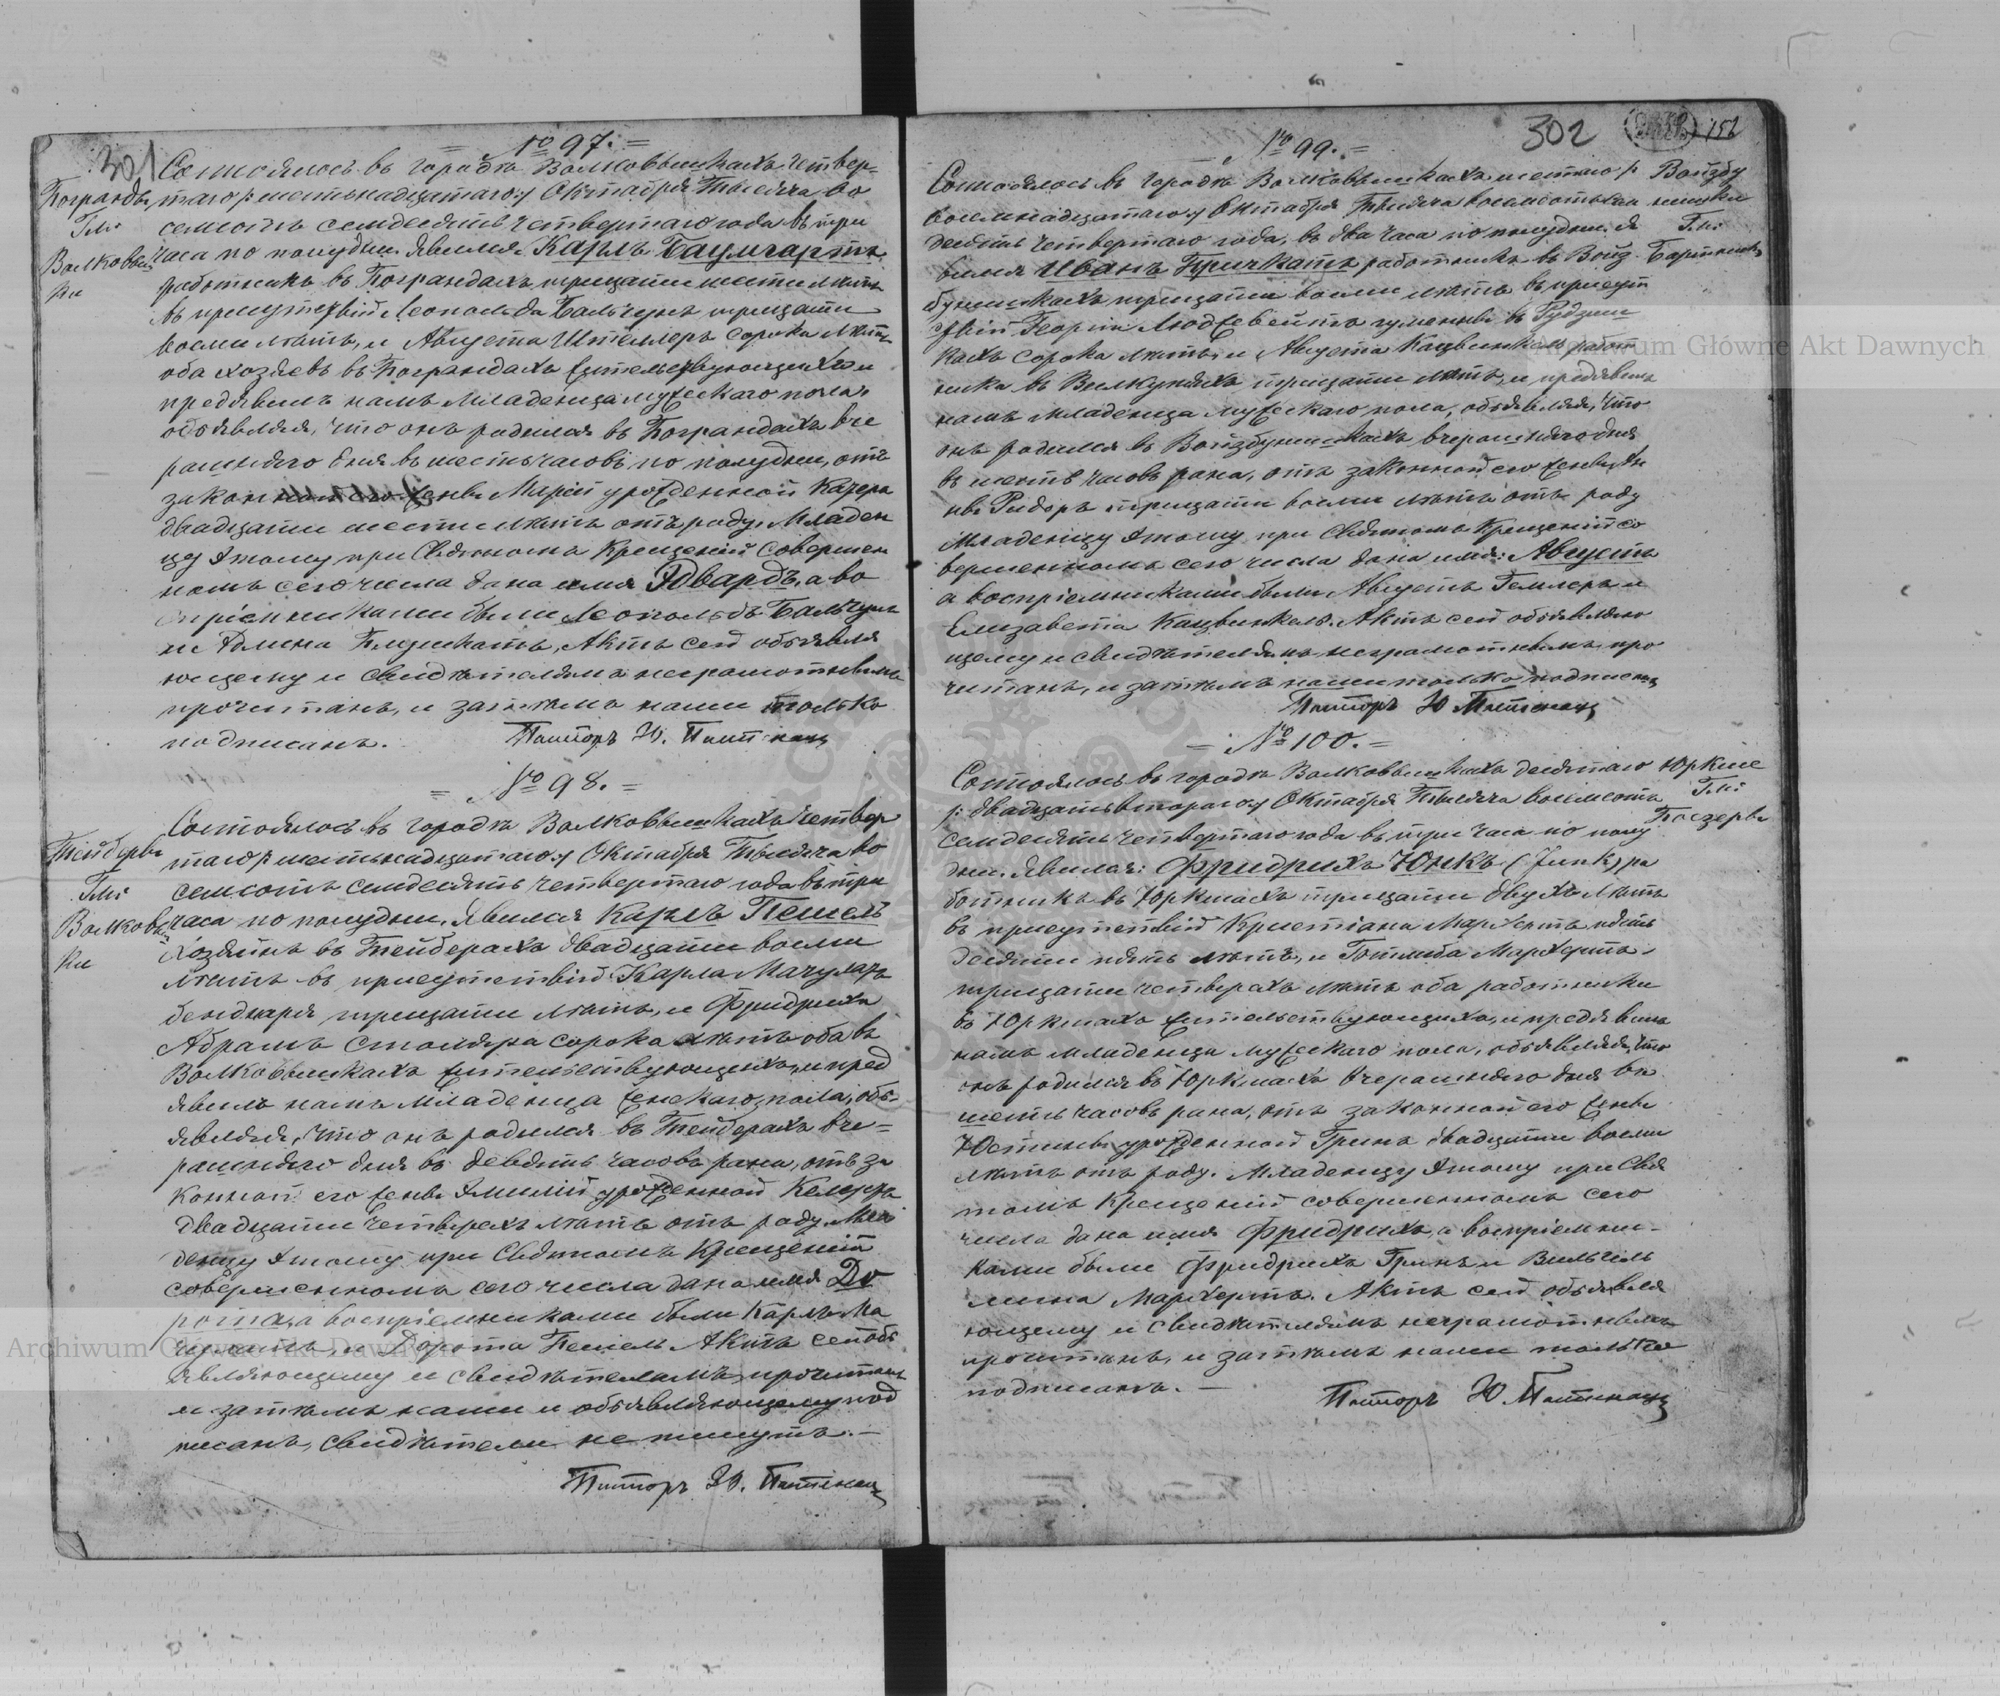 301
№ 97. =
Состоялось въ городкѣ Волковышкахъ четвер-
Погранды таго /: шестьнадцатаго :/ Октября Тысяча во
Гм:
семьсотъ семдесятъ четвертаго года въ три
Волковыш часа по полудни. Явился Карлъ Баумгартъ
ки
работникъ въ Пограндахъ тридцати шести лѣтъ
въ присутствіи Леопольда Бальчунъ тридцати
восьми лѣтъ, и Августа Штеллеръ сорока лѣтъ
оба хозяевъ въ Пограндахъ жительствующихъ и
предявилъ намъ младенца мужескаго пола,
объявляя, что онъ родился въ Пограндахъ вче
рашняго дня въ шесть часовъ по полудни, отъ
законной его жены Маріи урожденной
двадцати шести лѣтъ отъ роду. Младен
цу этому при Святомъ Крещеніи совершен
номъ сего числа дано имя Эдвардъ, а во
спріемниками были Леопольдъ Бальчунъ
и Актъ сей объявля
ющему и свидѣтелямъ неграмотнымъ
прочитанъ, и затѣмъ нами только
подписанъ. Пасторъ Ю.
= № 98. =
Состоялось въ городкѣ Волковышкахъ четвер
Тейберы таго /: шестьнадцатаго :/ Октября Тысяча во
Гм:
семсотъ семдесятъ четвертаго года въ три
Волковыш часа по полудни, явился Карлъ Пешель
ки
хозяинъ въ Тейберахъ двадцати восьми
лѣтъ въ присутствіи Карла Мачулатъ
бенднаря тридцати лѣтъ, и Фридриха
Абрамъ столяра сорока лѣтъ оба въ
Волковышкахъ жительствующихъ, и пред
явилъ намъ младенца женскаго пола, объ-
являя, что онъ родился въ Тейберахъ вче-
рашняго дня въ девять часовъ рана, отъ за
конной его жены Эмиліи урожденной
двадцати четырехъ лѣтъ отъ роду. Мла
денцу этому при Святомъ Крещеніи
совершенномъ сего числа дано имя До
рота, а воспріемниками были Карлъ Ма
чулатъ и Дорота Пешель. Актъ сей объ
являющему и свидѣтелямъ прочитанъ
и затѣмъ нами и объявляющему под
писанъ, свидѣтели не пишутъ. —
Пасторъ Ю.
302 152
№ 99. =
Состоялось въ городкѣ Волковышкахъ шестаго /: Войзбу
восемнадцатаго :/ Октября Тысяча восемьсотъ сем нишки
десятъ четвертаго года, въ два часа по полудни. Я Гм:
вился Иванъ Причкатъ, работникъ въ Войз-
бунишкахъ тридцати восьми лѣтъ въ присут
ствіи Георгія въ
кахъ сорока лѣтъ, и Августа Кацвинкель работ
ника въ тридцати лѣтъ, и предявилъ
намъ младенца мужескаго пола, объявляя, что
онъ родился въ Войзбунишкахъ вчерашняго дня
въ шесть часовъ рана, отъ законной его жены Ан
ны тридцати восьми лѣтъ отъ роду
Младенцу этому при Святомъ Крещеніи со
вершенномъ сего числа дано имя: Августъ
а воспріемниками были Августъ и
Елизавета Кацвинкель. Актъ сей объявляю
щему и свидѣтелямъ неграмотнымъ про
читанъ, и затѣмъ нами только подписанъ
Пасторъ Ю.
= № 100. =
Состоялось въ городкѣ Волковышкахъ десятаго Юркше
/: двадцать втораго :/ Октября Тысяча восемсотъ Гм:
семдесятъ четвертаго года въ три часа по полу
дни. Явился: Фридрихъ Юнкъ (Junk) ра
ботникъ въ Юркшахъ тридцати двухъ лѣтъ
въ присутствіи Христіана Маркертъ пять
десяти пять лѣтъ, и Готлиба Маркертъ
тридцати четырехъ лѣтъ оба работники
въ Юркшахъ жительствующихъ, и предявилъ
намъ младенца мужескаго пола, объявляя, что
онъ родился въ Юркшахъ вчерашняго дня въ
шесть часовъ рана, отъ законной его жены
Юстины урожденной Гринъ двадцати восьми
лѣтъ отъ роду. Младенцу этому при Свя
томъ Крещеніи совершенномъ сего
числа дано имя Фридрихъ, а воспріемни-
ками были Фридрихъ Гринъ и Вильгель
мина Маркертъ. Актъ сей объявля
ющему и свидѣтелямъ неграмотнымъ
прочитанъ, и затѣмъ нами только
подписанъ. —
Пасторъ Ю.
Archiwum Główne Akt Dawnych
Archiwum Główne Akt Dawnych